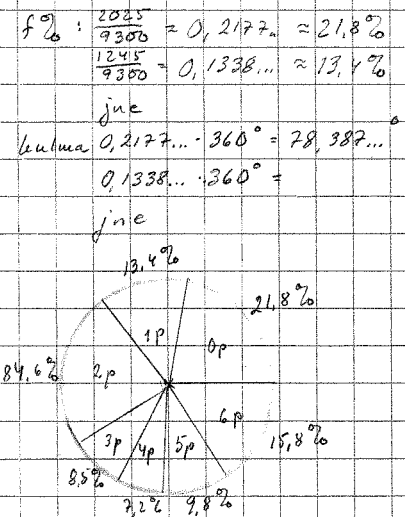 f% : 2025/9300 = 0,2177.. ≈ 21,8%
1245/9300 = 0,1338... ≈ 13,4%
jne
kulma 0,2177... · 360° = 78,387...°
0,1338... · 360° =
jne
13,4%
21,8%
1p
0p
84,6%
2p
6p
15,8%
3p
4p
5p
8,5%
7,2%
9,8%